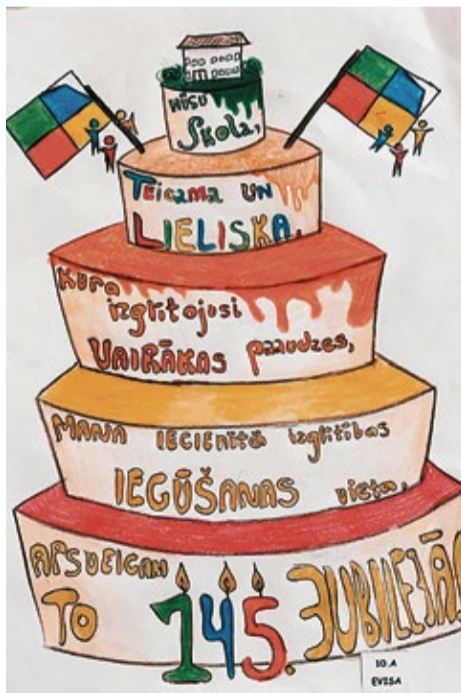 MŪSU
Skola,
Teicama UN
LIELISKA,
Kura
izglītojusi
VAIRĀKAS paaudzes,
MANA IECIENĪTĀ izglītības
IEGŪŠANAS vieta,
APSVEICAM
TO 145. JUBILEJĀ!
10.A
EVISA